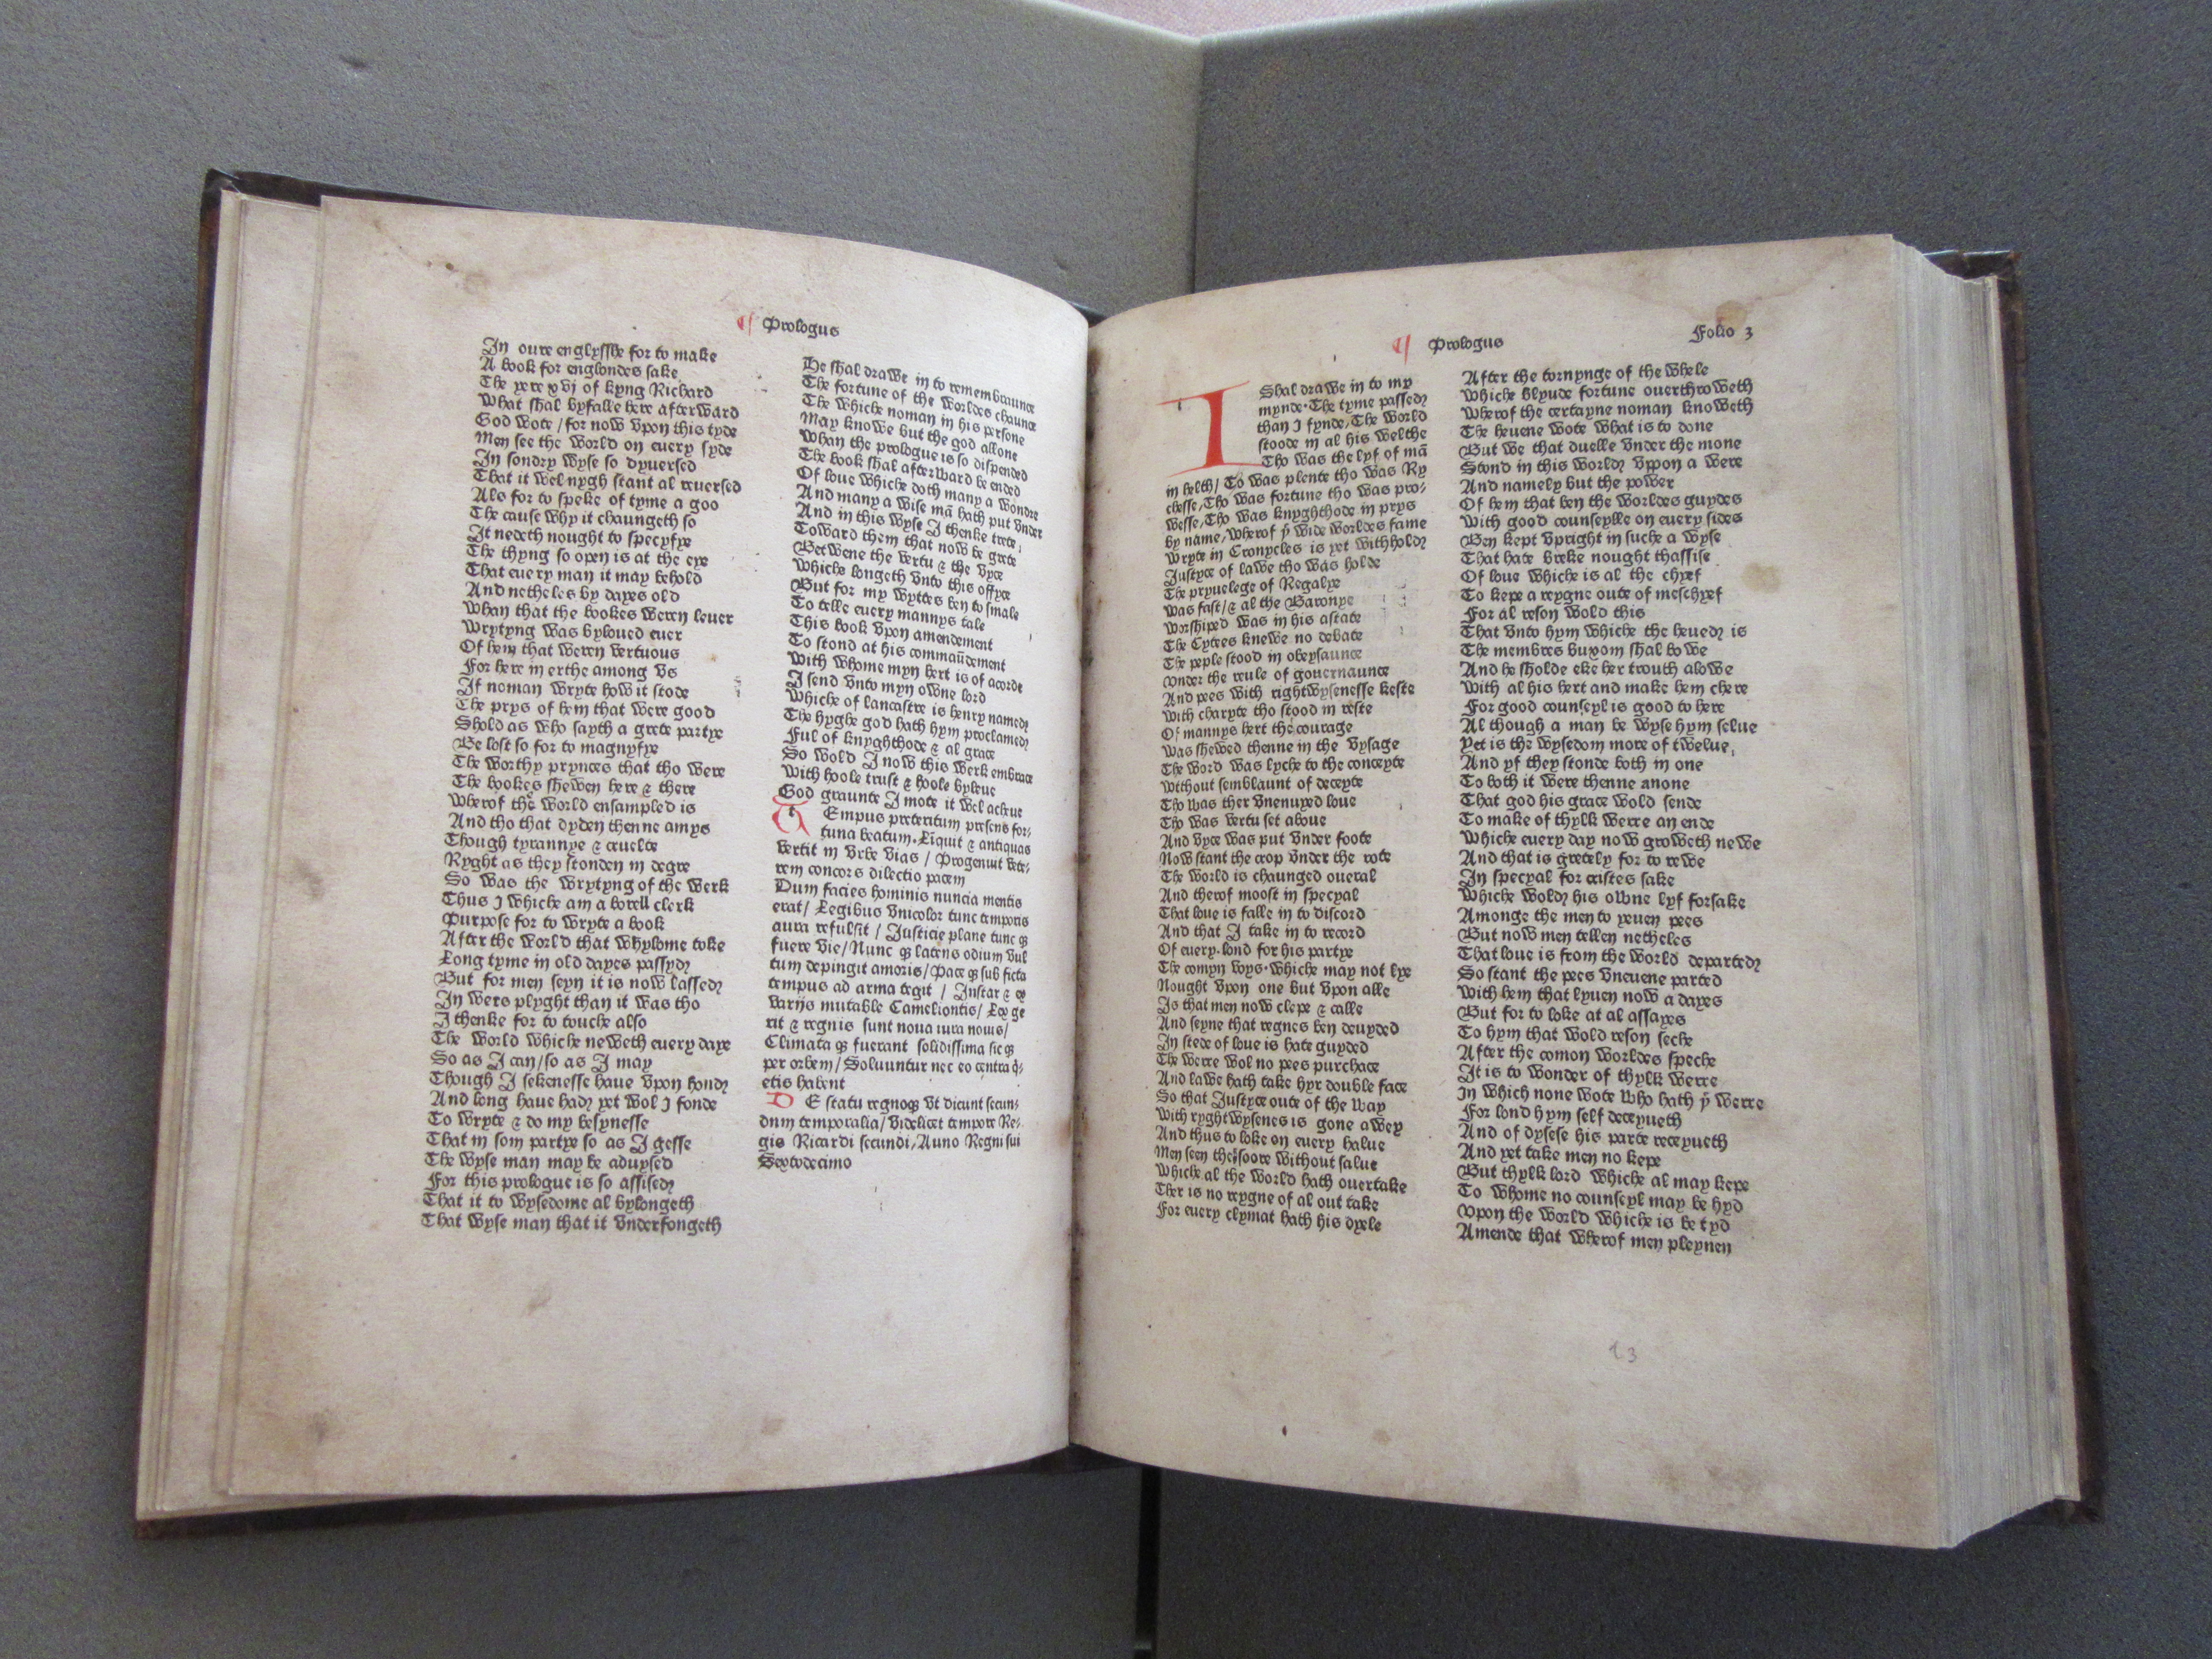 ¶ Prologus
In oure englysshe for to make
A book for englondes sake
The yere xvj of kyng Richard
What shal byfalle here afterward
God wote / for now vpon this tyde
Men see the world on euery syde
In sondry wyse so dyuersed
That it wel nygh stant al reuersed
Als for to speke of tyme a goo
The cause why it chaungeth so
It nedeth nought to specyfye
The thyng so open is at the eye
That euery man it may behold
And netheles by dayes old
Whan that the bookes weren leuer
Wrytyng was byloued euer
Of hem that weren vertuous
For here in erthe among vs
If noman wryte how it stode
The prys of hem that were good
Shold as who sayth a grete partye
Be lost so for to magnyfye
The worthy prynces that tho were
The bookes shewen here & there
Wherof the world ensampled is
And tho that dyden thenne amys
Though tyrannye & cruelte
Ryght as they stonden in degre
So was the wrytyng of the werk
Thus I whiche am a borell clerk
Purpose for to wryte a book
After the world that whylome toke
Long tyme in old dayes passyd
But for men seyn it is now lassed
In wers plyght than it was tho
I thenke for to touche also
The world whiche neweth euery daye
So as I can / so as I may
Though I sekenesse haue vpon hond
And long haue had yet wol I fonde
To wryte & do my besynesse
That in som partye so as I gesse
The wyse man may be aduysed
For this prologue is so assised
That it to wysedome al bylongeth
That wyse man that it vnderfongeth
He shal drawe in to remembraunce
The fortune of the worldes chaunce
The whiche noman in his persone
May knowe but the god allone
Whan the prologue is so dispended
The book shal afterward be ended
Of loue whiche doth many a wondre
And many a wise mā hath put vnder
And in this wyse I thenke trete
Toward them that now be grete
Betwene the vertu & the vyce
Whiche longeth vnto this offyce
But for my wyttes ben to smale
To telle euery mannys tale
This book vpon amendement
To stond at his commaūdement
With whome myn hert is of acorde
I send vnto myn owne lord
Whiche of lancastre is henry named
The hyghe god hath hym proclamed
Ful of knyghthode & al grace
So wold I now this werk embrace
With hoole trust & hoole byleue
God graunte I mote it wel acheue
TEmpus preteritum presens for-
tuna beatum. Liquit & antiquas
vertit in vrbe vias / Progenuit vete-
rem concors dilectio pacem
Dum facies hominis nuncia mentis
erat / Legibus vnicolor tunc temporis
aura refulsit / Justicie plane tunc qȝ
fuere vie / Nunc qȝ latens odium vul
tum depingit amoris / Pace qȝ sub ficta
tempus ad arma tegit / Instar & ex
varijs mutabile Cameliontis / Lex ge
rit & regnis sunt noua iura nouis /
Climata qȝ fuerant solidissima sic qȝ
per orbem / Soluuntur nec eo centra q̄-
etis habent
DE statu regnoȝ vt dicunt secun-
dum temporalia / videlicet tempore Re-
gis Ricardi secundi, Anno Regni sui
Sextodecimo
¶ Prologus
Folio 3
I Shal drawe in to my
mynde. The tyme passed
than I fynde, The world
stoode in al his welthe
Tho was the lyf of mā
in helth / To was plente tho was Ry
chesse, Tho was fortune tho was pro-
wesse, Tho was knyghthode in prys
by name, wherof ẏ wide worldes fame
Wryte in Cronycles is yet withhold
Justyce of lawe tho was holde
The pryuelege of Regalye
Was fast / & al the Baronye
Worshiped was in his astate
The Cytees knewe no debate
The peple stood in obeysaunce
Vnder the reule of gouernaunce
And pees with rightwysenesse keste
With charyte tho stood in reste
Of mannys hert the courage
Was shewed thenne in the vysage
The word was lyche to the conceyte
Without semblaunt of deceyte
Tho was ther vnenuyed loue
Tho was vertu set aboue
And vyce was put vnder foote
Now stant the crop vnder the rote
The world is chaunged oueral
And therof moost in specyal
That loue is falle in to discord
And that I take in to record
Of euery lond for his partye
The comyn voys whiche may not lye
Nought vpon one but vpon alle
Is that men now clepe & calle
And seyne that regnes ben deuyded
In stede of loue is hate guyded
The werre wol no pees purchace
And lawe hath take hyr double face
So that Justyce oute of the way
With ryghtwysenes is gone awey
And thus to loke on euery halue
Men seen the soore without salue
Whiche al the world hath ouertake
Ther is no reygne of al out take
For euery clymat hath his dyele
After the tornynge of the whele
Whiche blynde fortune ouerthroweth
Wherof the certayne noman knoweth
The heuene wote what is to done
But we that duelle vnder the mone
Stond in this world vpon a were
And namely but the power
Of hem that ben the worldes guydes
With good counseylle on euery sides
Ben kept vpright in suche a wyse
That hate breke nought thassise
Of loue whiche is al the chyef
To kepe a reygne oute of meschyef
For al reson wold this
That vnto hym whiche the heued is
The membres buxom shal bowe
And he sholde eke her trouth alowe
With al his hert and make hem chere
For good counseyl is good to here
Al though a man be wyse hym selue
Yet is the wysedom more of twelue,
And yf they stonde both in one
To both it were thenne anone
That god his grace wold sende
To make of thylk werre an ende
Whiche euery day now groweth newe
And that is gretely for to rewe
In specyal for cristes sake
Whiche wold his owne lyf forsake
Amonge the men to yeuen pees
But now men tellen netheles
That loue is from the world departed
So stant the pees vneuene parted
With hem that lyuen now a dayes
But for to loke at al assayes
To hym that wold reson seche
After the comon worldes speche
It is to wonder of thylk werre
In which none wote who hath ẏ werre
For lond hym self deceyueth
And of dysese his parte receyueth
And yet take men no kepe
But thylk lord whiche al may kepe
To whome no counseyl may be hyd
Vpon the world whiche is be tyd
Amende that wherof men pleynen